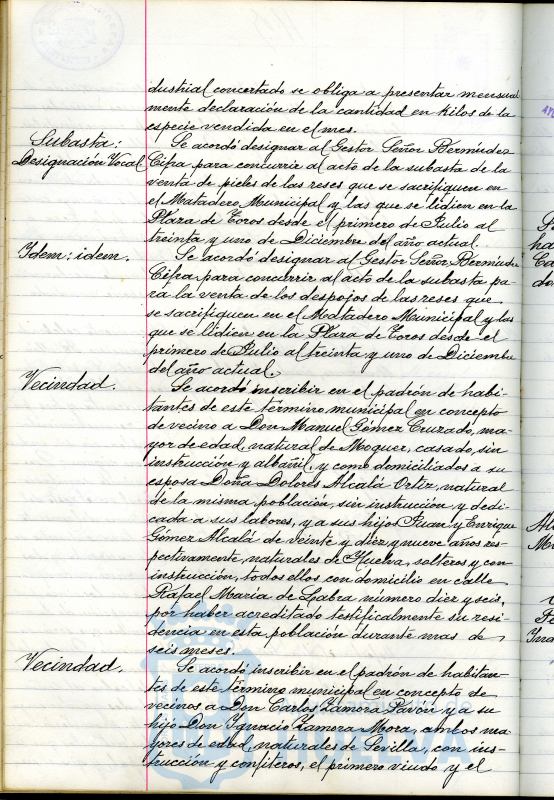 dustrial concertado se obliga a presentar mensual
mente declaración de la cantidad en kilos de la
especie vendida en el mes.
Subasta:
Designación Vocal
Se acordó designar al Gestor Señor Bermúdez
Cifra para concurrir al acto de la subasta de la
venta de pieles de las reses que se sacrifiquen en
el Matadero Municipal y las que se lidien en la
Plaza de Toros desde el primero de Julio al
treinta y uno de Diciembre del año actual.
Idem: idem.
Se acordó designar al Gestor Señor Bermúdez
Cifra para concurrir al acto de la subasta pa-
ra la venta de los despojos de las reses que
se sacrifiquen en el Matadero Municipal y las
que se lidien en la Plaza de Toros desde el
primero de Julio al treinta y uno de Diciembre
del año actual.
Vecindad.
Se acordó inscribir en el padrón de habi-
tantes de este término municipal en concepto
de vecino a Don Manuel Gómez Cruzado, ma-
yor de edad, natural de Moguer, casado, sin
instrucción y albañil, y como domiciliados a su
esposa Doña Dolores Alcalá Ortiz, natural
de la misma población, sin instrucción y dedi-
cada a sus labores, y a sus hijos Juan y Enrique
Gómez Alcalá de veinte y diez y nueve años res-
pectivamente, naturales de Huelva, solteros y con
instrucción, todos ellos con domicilio en calle
Rafael Maria de Labra número diez y seis,
por haber acreditado testificalmente su resi-
dencia en esta población durante mas de
seis meses.
Vecindad.
Se acordó inscribir en el padrón de habitan-
tes de este término municipal en concepto de
vecinos a Don Carlos Zamora Pavón y a su
hijo Don Ignacio Zamora Mora, ambos ma-
yores de edad, naturales de Sevilla, con ins-
trucción y confiteros, el primero viudo y el